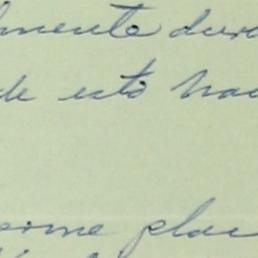 lmente dura
de esto hac
erme plac